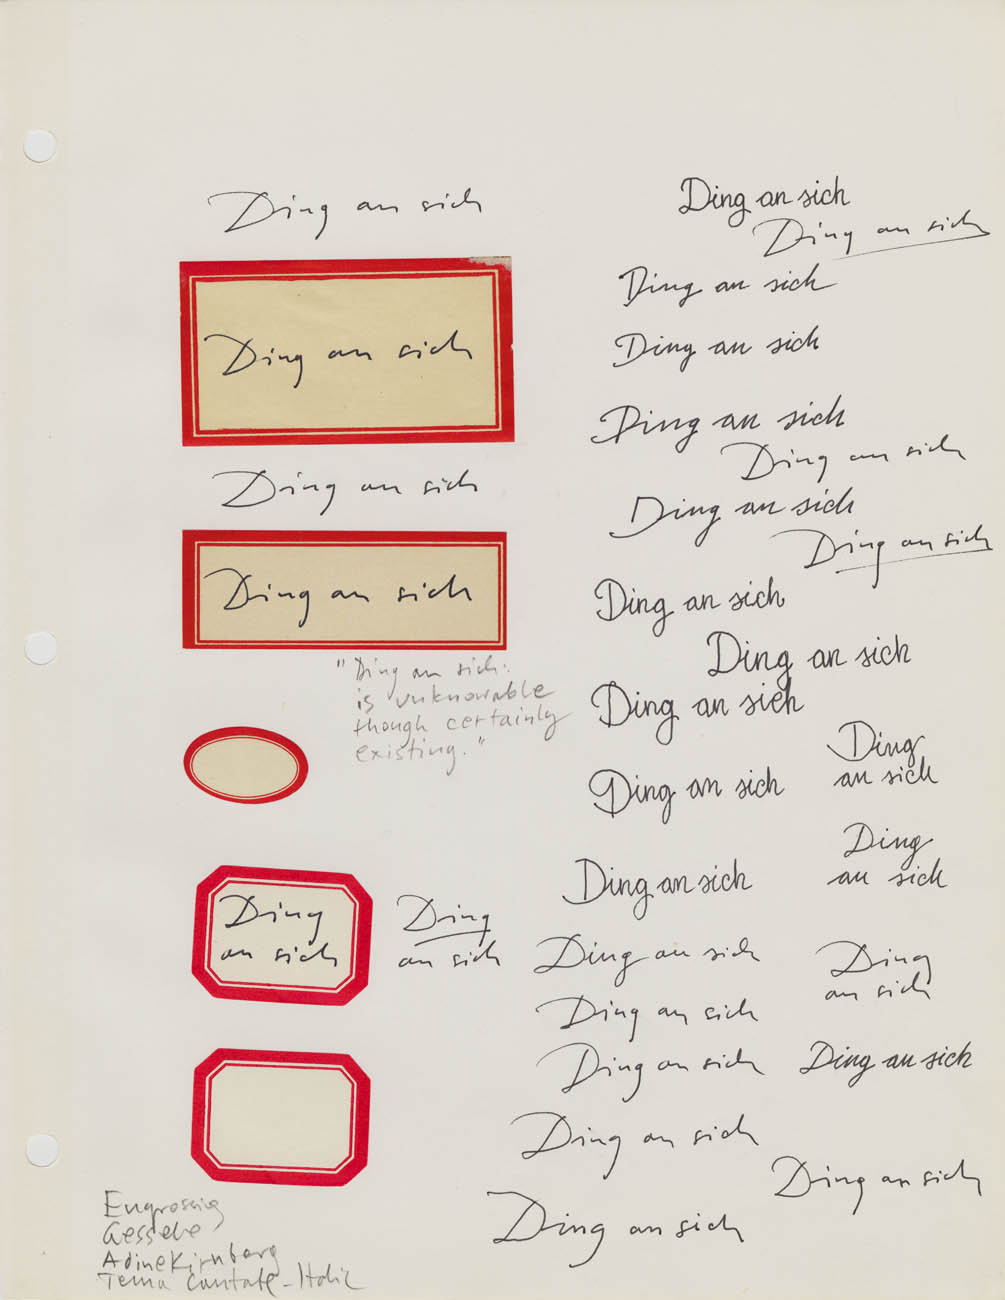 Ding an sich
Ding an sich
Ding an sich
Ding an sich
"Ding an sich.
is unknowable
though certainly
existing."
Ding
an sich
Ding
an sich
Engrossing
Gessele
Adine Kirnberg
Tema Cantate - Italic
Ding an sich
Ding an sich
Ding an sich
Ding an sich
Ding an sich
Ding an sich
Ding an sich
Ding an sich
Ding an sich
Ding an sich
Ding an sich
Ding
an sich
Ding an sich
Ding
an sich
Ding an sich
Ding an sich
Ding
an sich
Ding an sich
Ding an sich
Ding an sich
Ding an sich
Ding an sich
Ding an sich